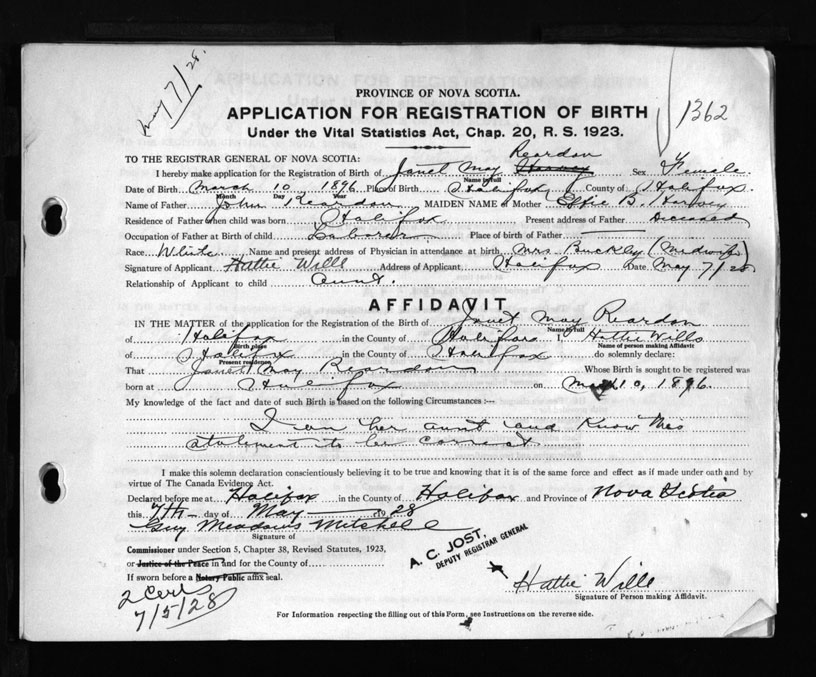 May 7/28.
PROVINCE OF NOVA SCOTIA.
APPLICATION FOR REGISTRATION OF BIRTH
1362
Under the Vital Statistics Act, Chap. 20, R. S. 1923.
Reardon
TO THE REGISTRAR GENERAL OF NOVA SCOTIA:
I hereby make application for the Registration of Birth of Janet May Harvey Sex Female
Name in full
Date of Birth March 10 1896 Place of Birth Halifax County of Halifax.
Month Day Year
Name of Father John Reardon MAIDEN NAME of Mother Effie B. Harvey
Residence of Father when child was born Halifax Present address of Father Deceased
Occupation of Father at Birth of child Laborer Place of birth of Father
Race White Name and present address of Physician in attendance at birth Mrs Buckly (Midwife)
Signature of Applicant Hattie Wills Address of Applicant Halifax Date May 7/28
Relationship of Applicant to child aunt.
AFFIDAVIT
IN THE MATTER of the application for the Registration of the Birth of Janet May Reardon
Name in full
of Halifax in the County of Halifax I Hattie Wills
Birth place Name of person making Affidavit
of Halifax in the County of Halifax do solemnly declare:
Present residence
That Janet May Reardon Whose Birth is sought to be registered was
born at Halifax on March 10, 1896.
My knowledge of the fact and date of such Birth is based on the following Circumstances :—
I am her aunt and know this
statement to be correct
I make this solemn declaration conscientiously believing it to be true and knowing that it is of the same force and effect as if made under oath and by
virtue of The Canada Evidence Act.
Declared before me at Halifax in the County of Halifax and Province of Nova Scotia
this 7th day of May 1928
Guy Meadows Mitchell
Signature of
Commissioner under Section 5, Chapter 38, Revised Statutes, 1923,
or Justice of the Peace in and for the County of
If sworn before a Notary Public affix seal.
A. C. JOST,
DEPUTY REGISTRAR GENERAL
Hattie Wills
Signature of Person making Affidavit.
2 Certs
7/5/28
For Information respecting the filling out of this Form, see Instructions on the reverse side.